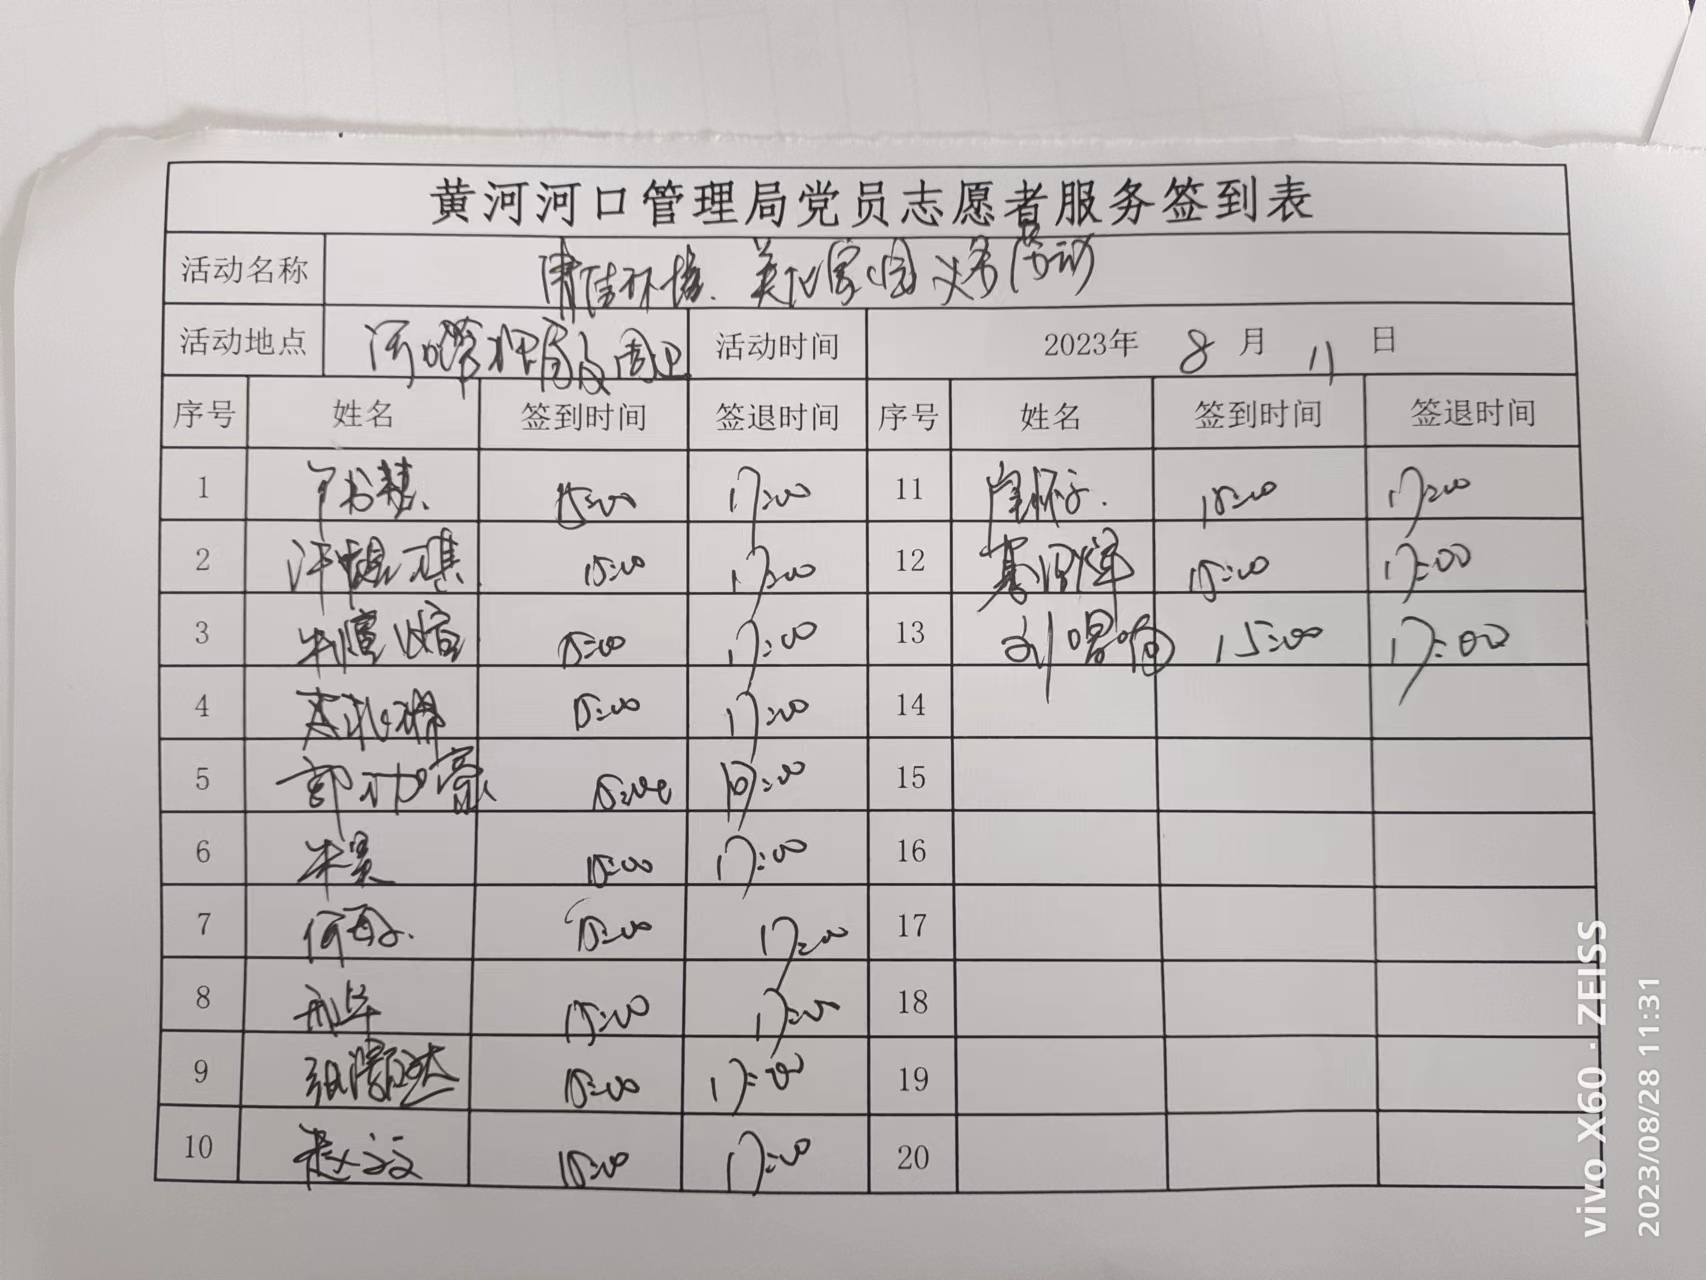 黄河河口管理局党员志愿者服务签到表
活动名称 清洁环境、美化家园义务劳动
活动地点 河口管理局及周边 活动时间 2023年 8 月 11 日
序号 姓名 签到时间 签退时间 序号 姓名 签到时间 签退时间
1 15:00 17:00 11 15:00 17:00
2 15:00 17:00 12 15:00 17:00
3 15:00 17:00 13 刘 15:00 17:00
4 15:00 17:00 14
5 郭功豪 15:00 17:00 15
6 朱昊 15:00 17:00 16
7 15:00 17:00 17
8 15:00 17:00 18
9 15:00 17:00 19
10 赵文 15:00 17:00 20
vivo X60 · ZEISS
2023/08/28 11:31